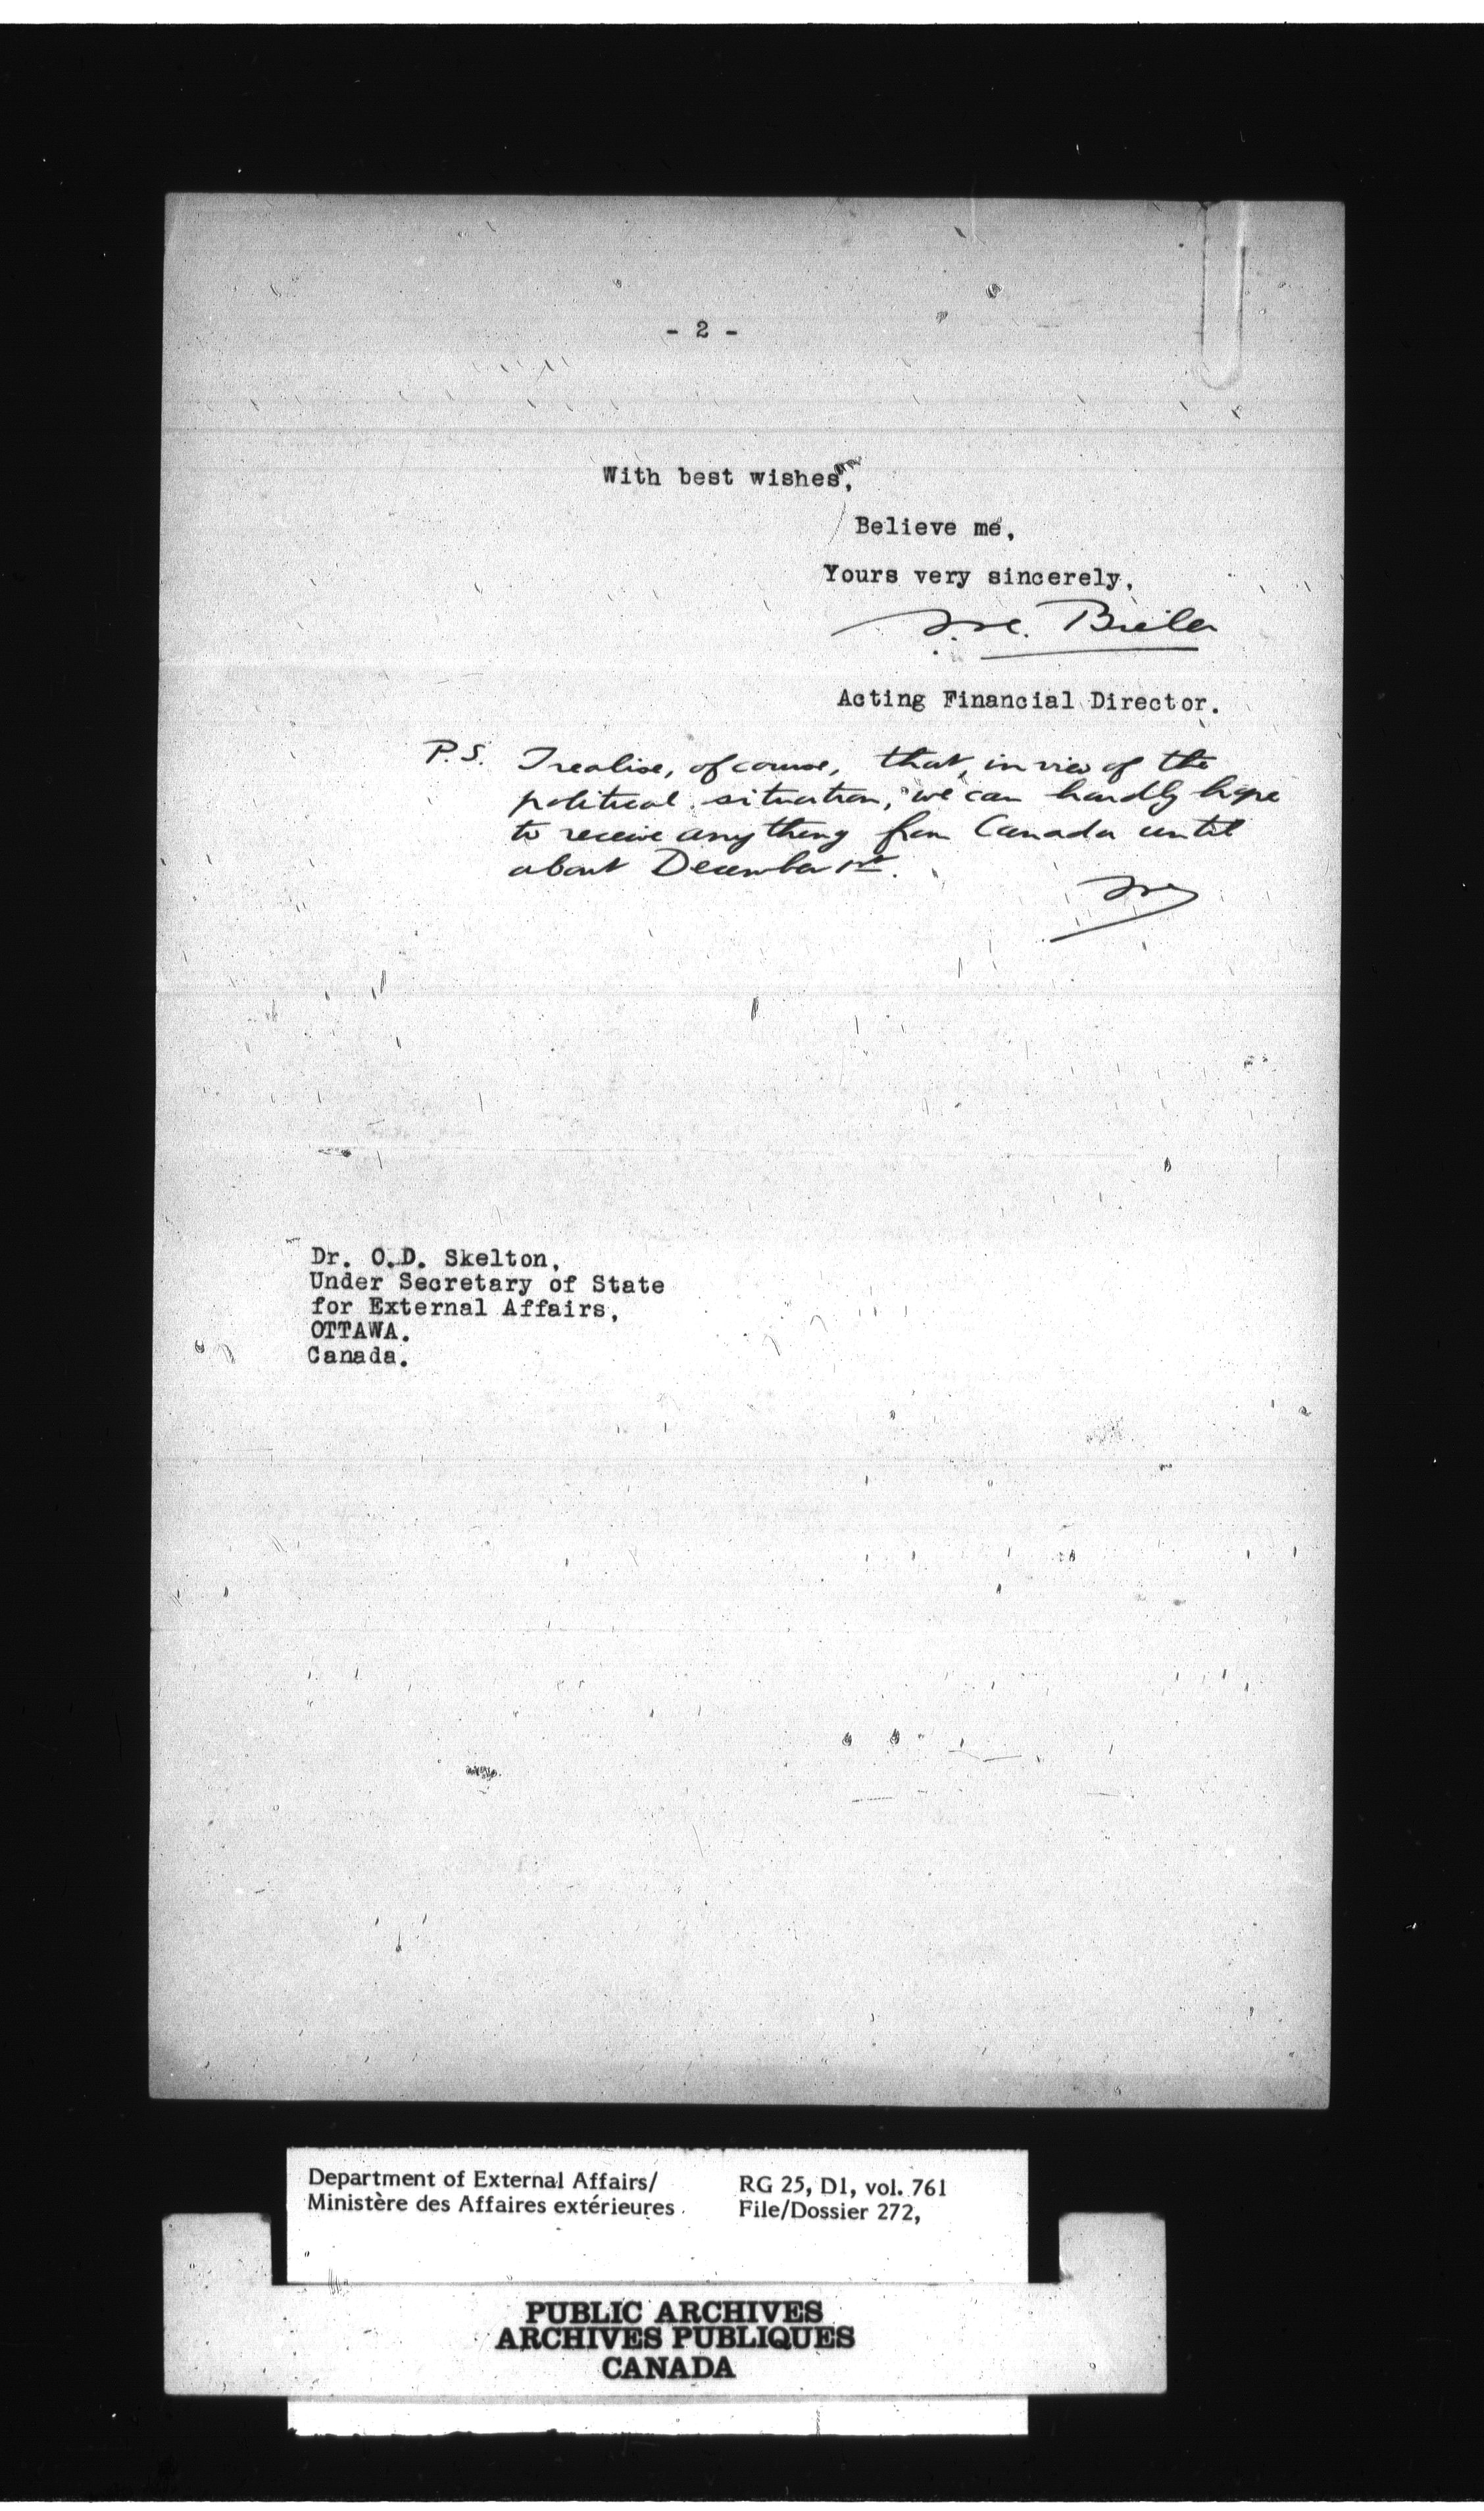 - 2 -
With best wishes,
Believe me,
Yours very sincerely,
Bieler
Acting Financial Director.
P.S. I realise, of course, that, in view of the
political situation, we can hardly hope
to receive anything from Canada until
about December 1st.
Dr. O.D. Skelton,
Under Secretary of State
for External Affairs,
OTTAWA.
Canada.
Department of External Affairs/
Ministère des Affaires extérieures
RG 25, D1, vol. 761
File/Dossier 272,
PUBLIC ARCHIVES
ARCHIVES PUBLIQUES
CANADA